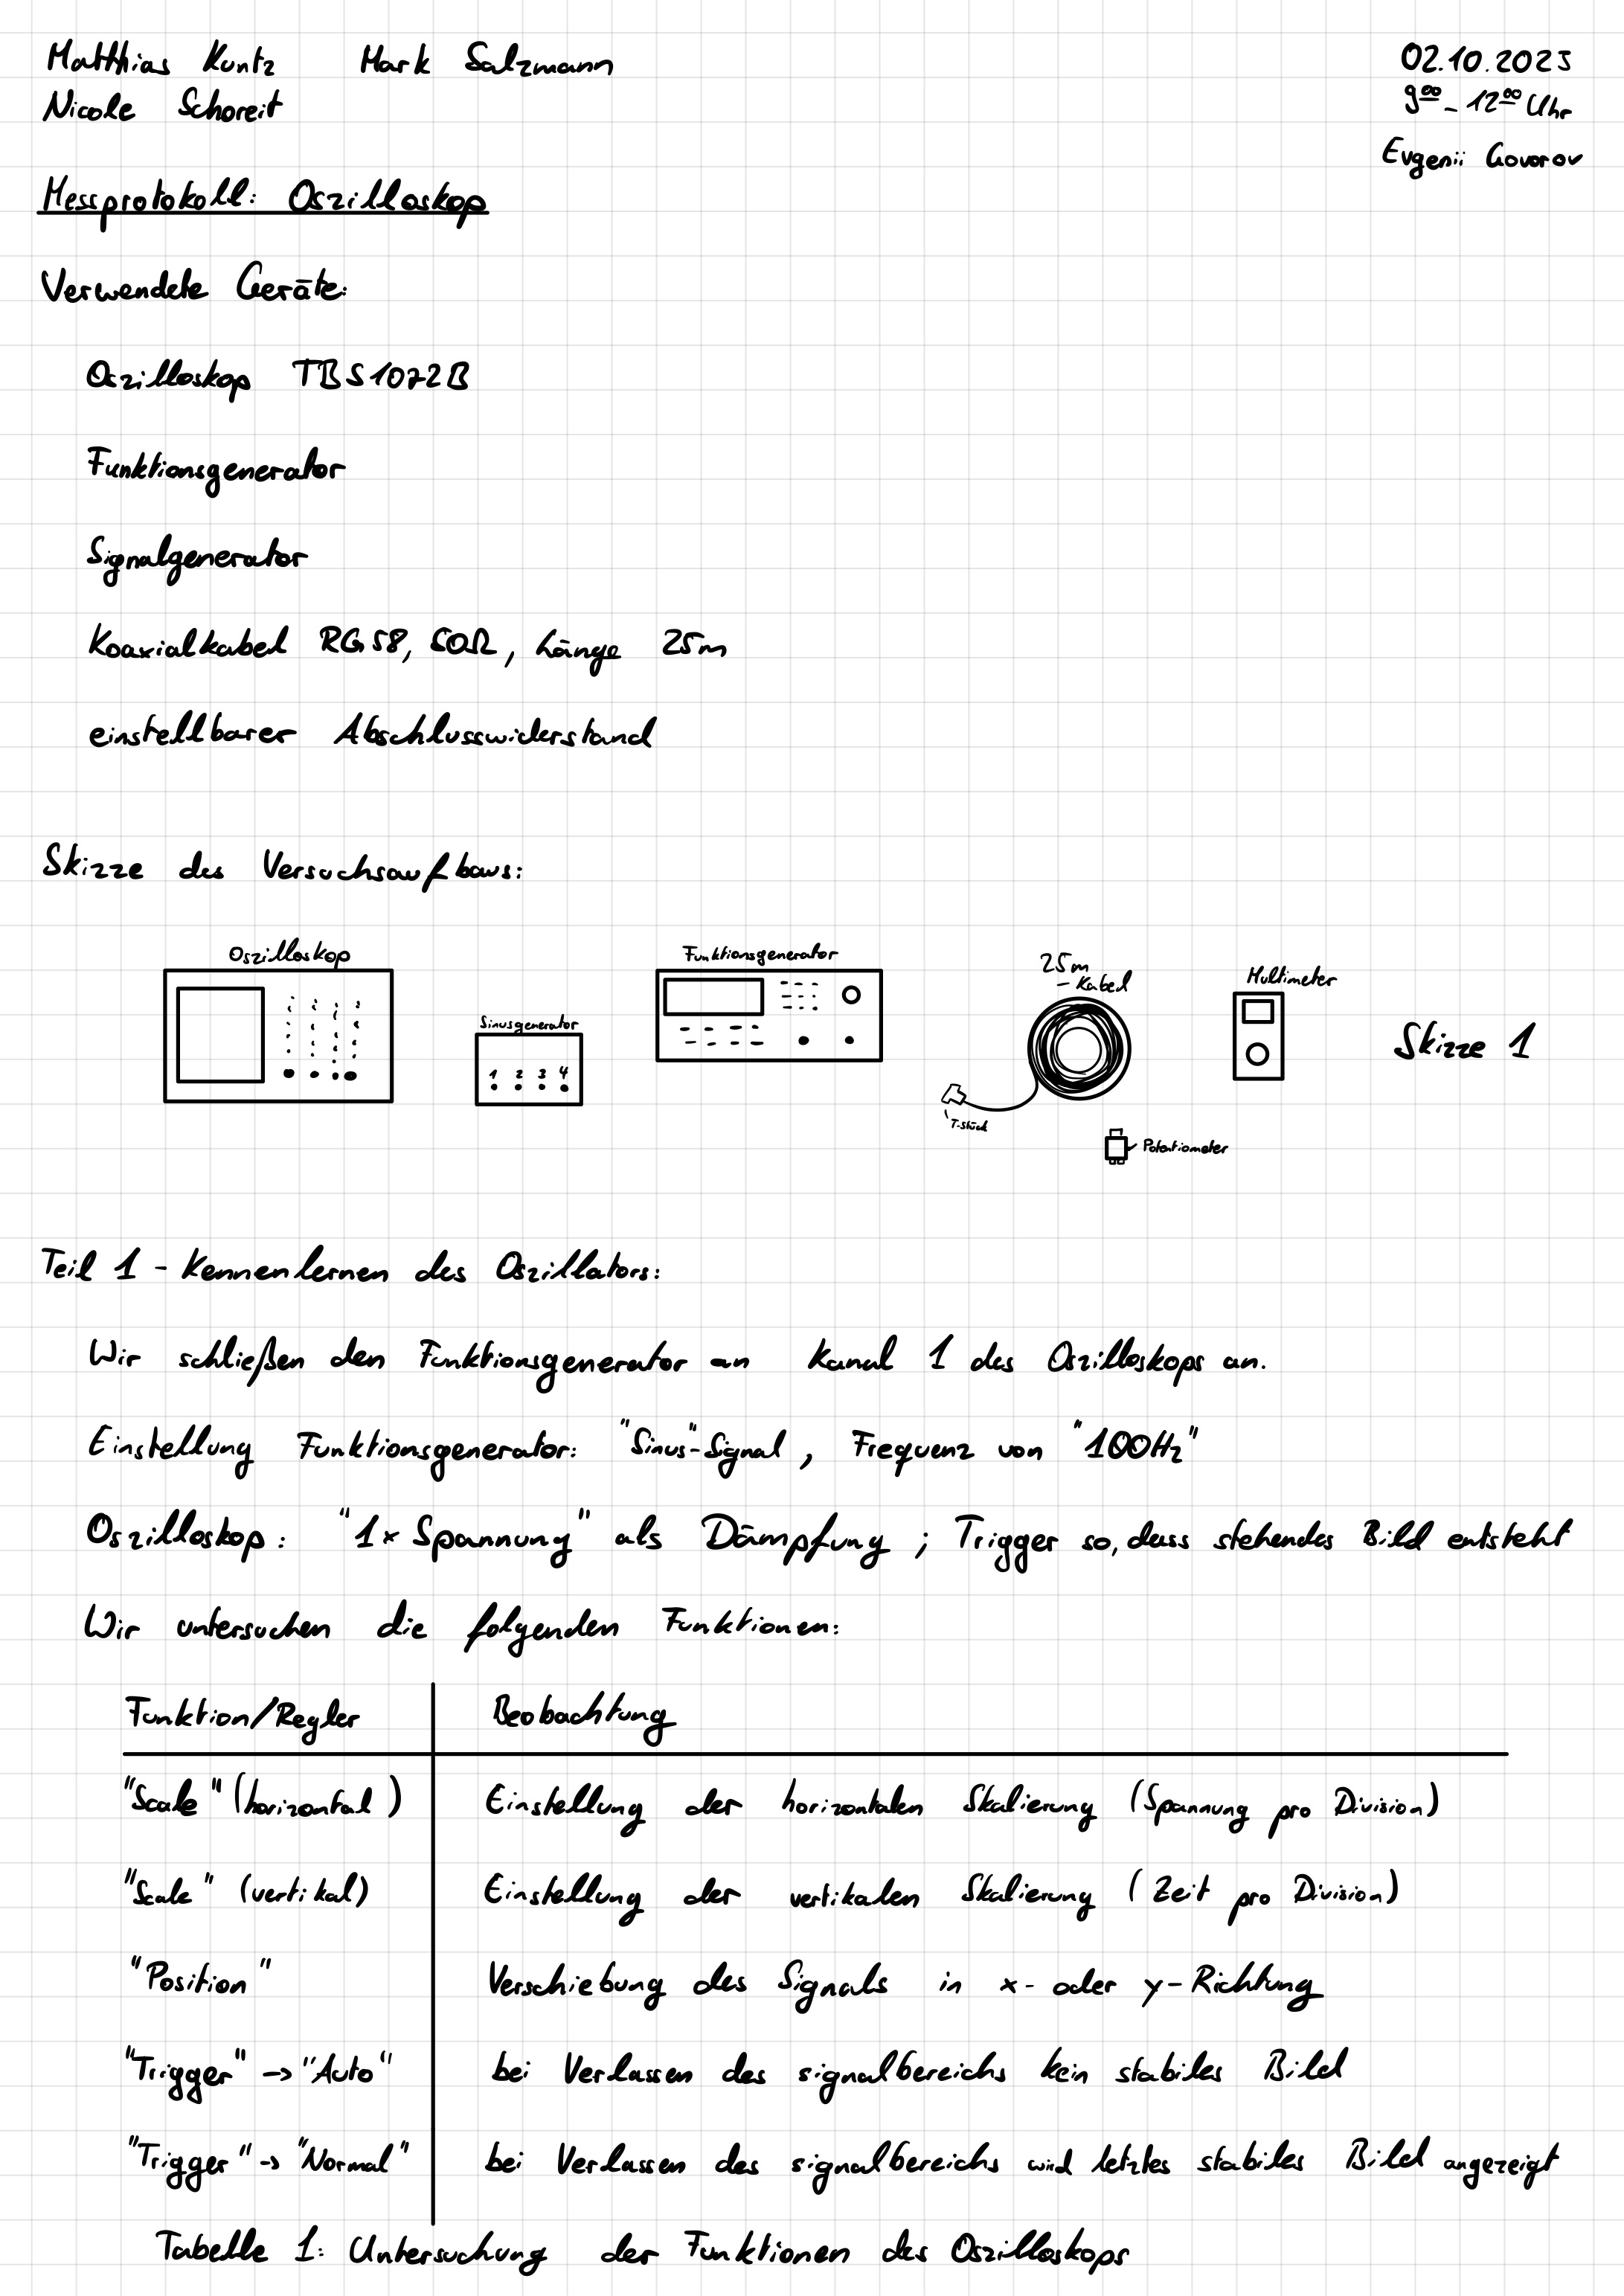 Matthias Kuntz Mark Salzmann
Nicole Schoreit
02.10.2025
9⁰⁰ - 12⁰⁰ Uhr
Evgenii Govorov
Messprotokoll: Oszilloskop
Verwendete Geräte:
Oszilloskop TBS1072B
Funktionsgenerator
Signalgenerator
Koaxialkabel RG58, 50Ω, Länge 25m
einstellbarer Abschlusswiderstand
Skizze des Versuchsaufbaus:
Oszilloskop
Sinusgenerator
1 2 3 4
Funktionsgenerator
25m
- Kabel
T-Stück
Potentiometer
Multimeter
Skizze 1
Teil 1 - Kennenlernen des Oszillators:
Wir schließen den Funktionsgenerator an Kanal 1 des Oszilloskops an.
Einstellung Funktionsgenerator: "Sinus"-Signal, Frequenz von "100Hz"
Oszilloskop: "1x Spannung" als Dämpfung; Trigger so, dass stehendes Bild entsteht
Wir untersuchen die folgenden Funktionen:
Funktion/Regler Beobachtung
"Scale" (horizontal) Einstellung der horizontalen Skalierung (Spannung pro Division)
"Scale" (vertikal) Einstellung der vertikalen Skalierung (Zeit pro Division)
"Position" Verschiebung des Signals in x- oder y-Richtung
"Trigger" -> "Auto" bei Verlassen des signalbereichs kein stabiles Bild
"Trigger" -> "Normal" bei Verlassen des signalbereichs wird letztes stabiles Bild angezeigt
Tabelle 1: Untersuchung der Funktionen des Oszilloskops